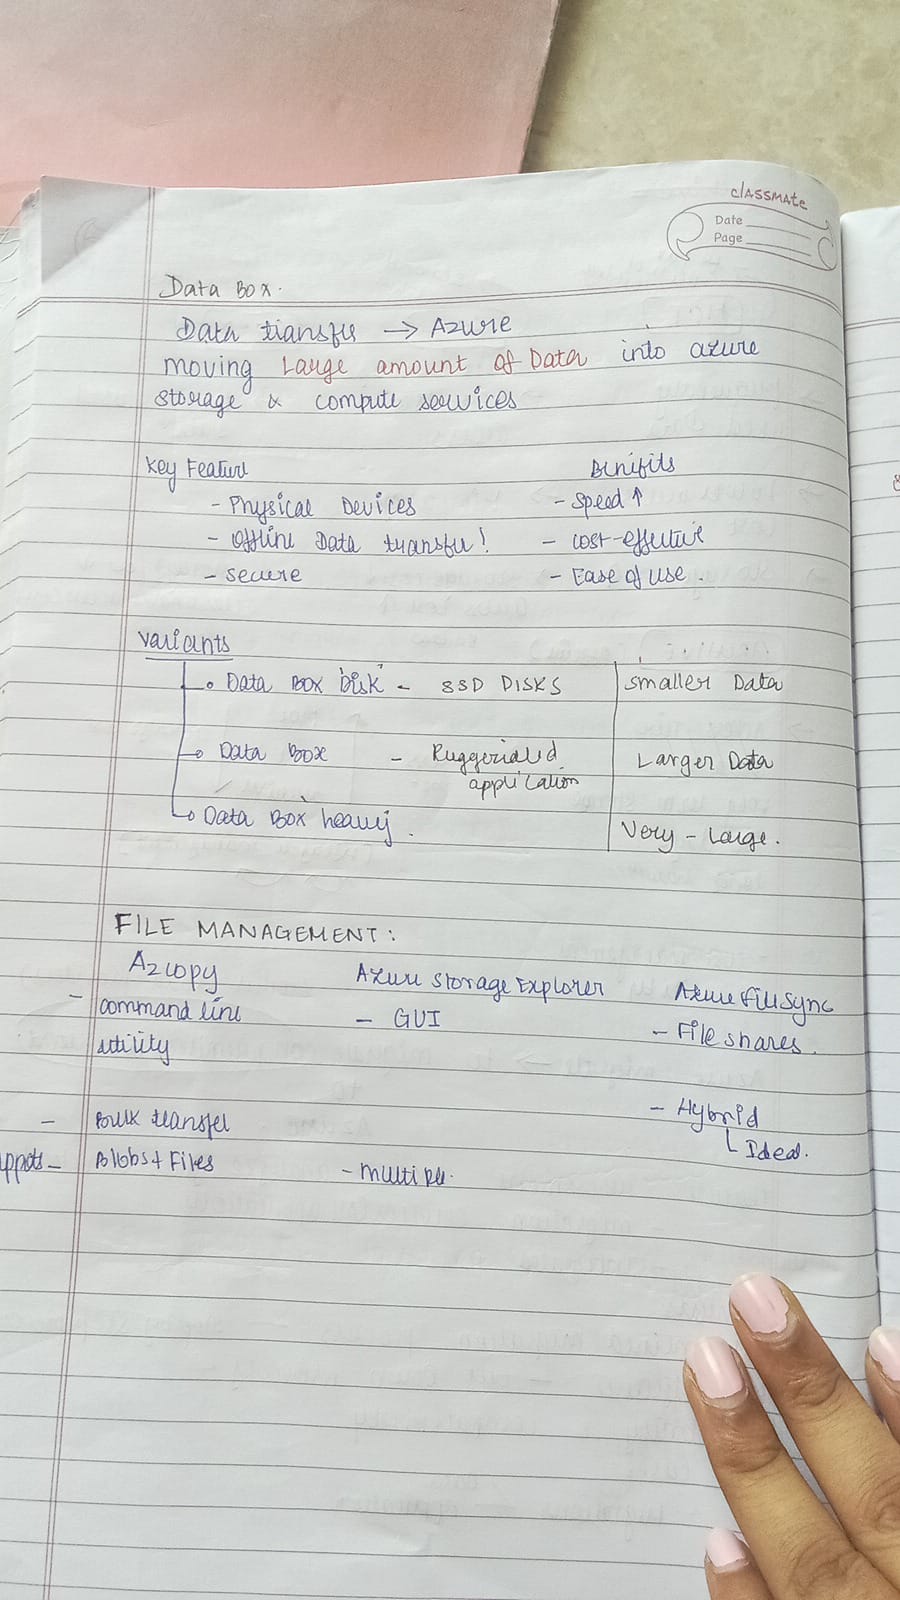 classmate
Date
Page
Data Box.
Data transfer → Azure
moving Large amount of Data into azure
storage & compute services
Key Feature
- Physical Devices
- offline Data transfer!
- secure
Benifits
- Speed ↑
- cost-effective
- Ease of use.
Variants
Data Box Disk - SSD DISKS | smaller Data
Data Box - application | Larger Data
Data Box heavy. | Very - Large.
FILE MANAGEMENT:
Azcopy
- command line
utility
- Bulk transfer
- Blobs + Files
Azure Storage Explorer
- GUI
- multiple.
Azure file sync
- File shares.
- Hybrid
Ideal.